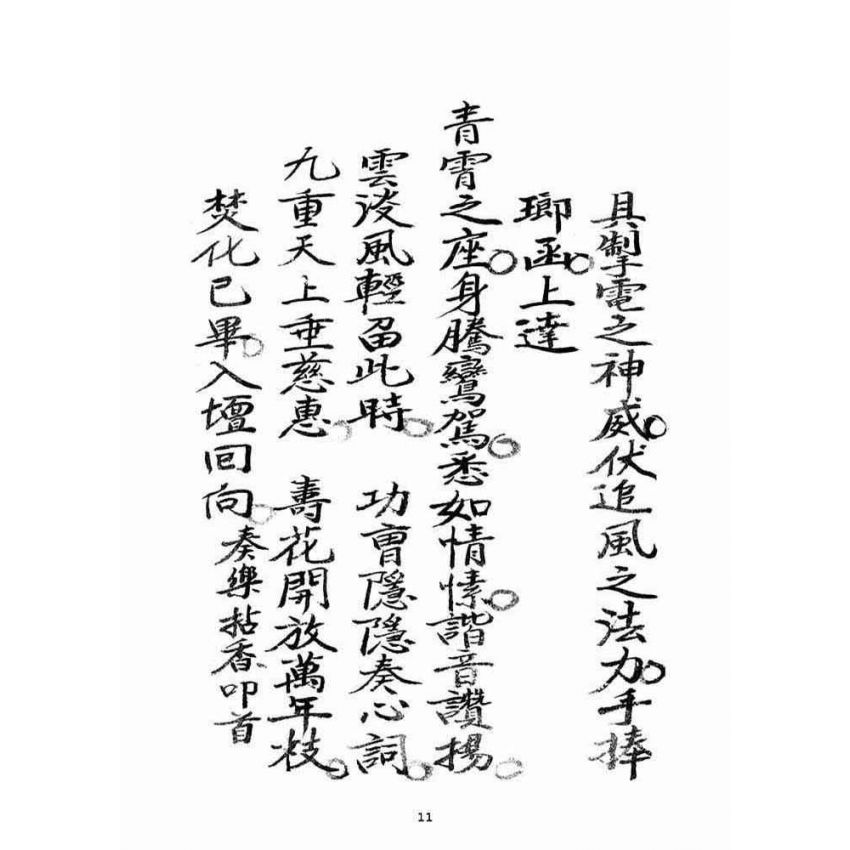 具掣電之神威○伏追風之法力○手捧
瑯函○上達
青霄之座○身騰鸞駕○悉如情愫○諧音讚揚○
雲淡風輕畱此時○ 功曹隱隱奏心詞○
九重天上垂慈惠○ 壽花開放萬年枝○
焚化已畢○入壇回向○奏樂拈香叩首
11